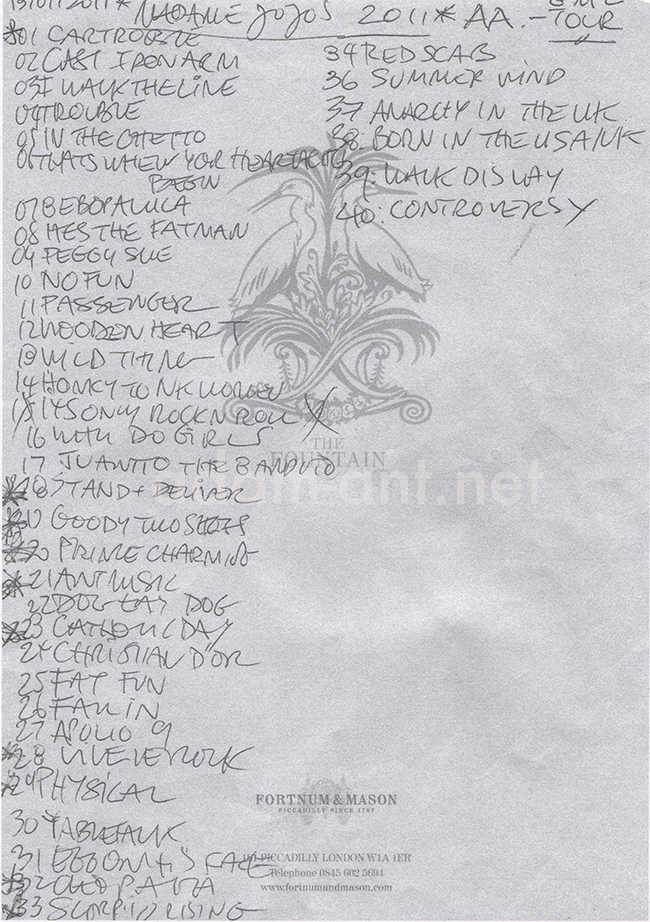 13/01/2011* MADAME JOJO'S 2011* AA.- TOUR
*01 CARTROUBLE
02 CAST IRON ARM
03 I WALK THE LINE
04 TROUBLE
05 IN THE GHETTO
06 THATS WHEN YOR HEARTACHES
BEGIN
07 BEBOPALULA
08 HES THE FATMAN
09 PEGGY SUE
10 NO FUN
11 PASSENGER
12 WOODEN HEART
13 WILD THING
14 HONKY TONK WOMEN
15 ITS ONLY ROCK N ROLL X
16 WHAT DO GIRLS
17 JUANITO THE BANDITO
*18 STAND + DELIVER
*19 GOODY TWO SHOES
*20 PRINCE CHARMING
*21 ANTMUSIC
22 DOG EAT DOG
*23 CATHOLIC DAY
24 CHRISTIAN D'OR
25 FAT FUN
26 FALL IN
27 APOLLO 9
*28 VIVE LE ROCK
*29 PHYSICAL
30 TABLETALK
31 FACE
*32 CLEOPATRA
*33 SCORPIO RISING
34 RED SCAB
36 SUMMER WIND
37 ANARCHY IN THE UK
38. BORN IN THE USA/UK
39. WALK DIS WAY
40. CONTROVERSY
THE
FOUNTAIN
adam-ant.net
FORTNUM & MASON
PICCADILLY SINCE 1707
181 PICCADILLY LONDON W1A 1ER
Telephone 0845 602 5694
www.fortnumandmason.com